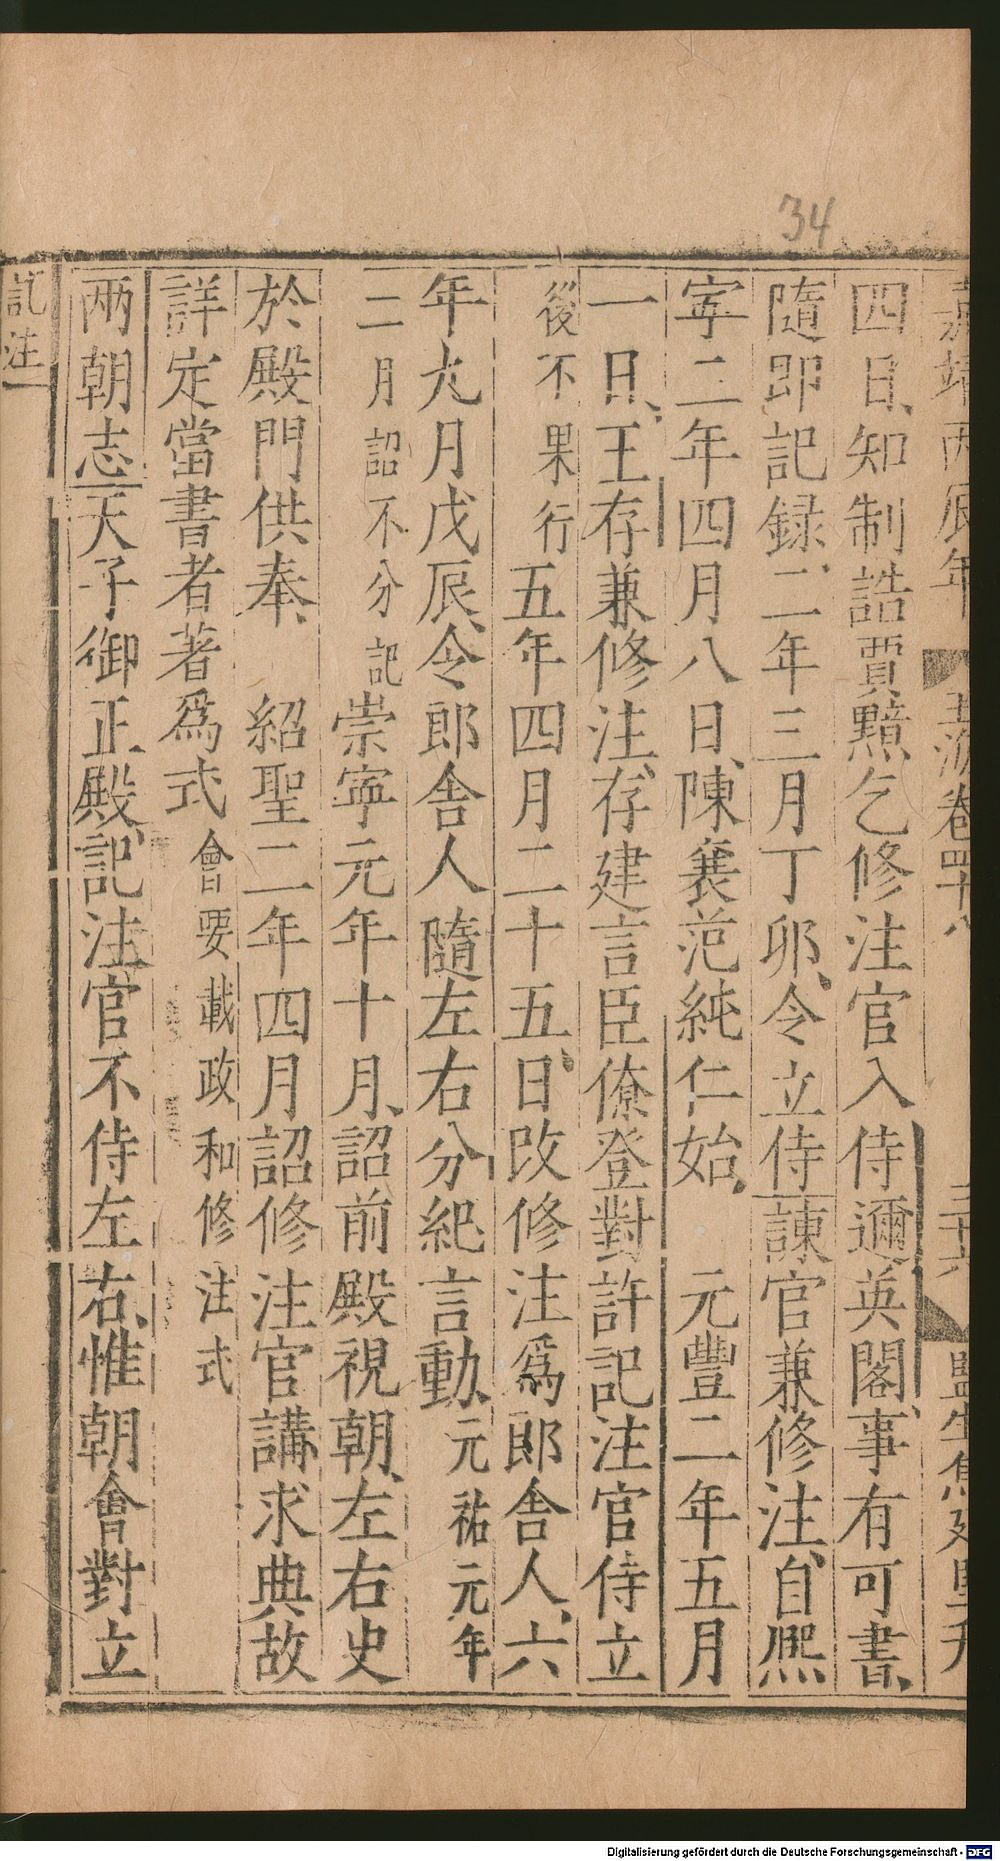 34
嘉靖丙辰年 玉海卷四十八 三十六 監生焦廷
四日、知制誥賈黯乞修注官入侍邇英閣、事有可書、
隨即記録、二年三月丁卯、令立侍諫官兼修注、自熈
寧二年四月八日、陳襄范純仁始、 元豐二年五月
一日、王存兼修注、存建言臣僚登對許記注官侍立
後不果行五年四月二十五日、改修注爲郎舎人、六
年九月戊辰、令郎舎人隨左右分紀言動、元祐元年
二月詔不分記崇寧元年十月、詔前殿視朝、左右史
於殿門供奉、 紹聖二年四月詔修注官講求典故
詳定當書者著爲式會要載政和修注式
兩朝志天子御正殿、記注官不侍左右、惟朝會對立
記注
Digitalisierung gefördert durch die Deutsche Forschungsgemeinschaft - DFG